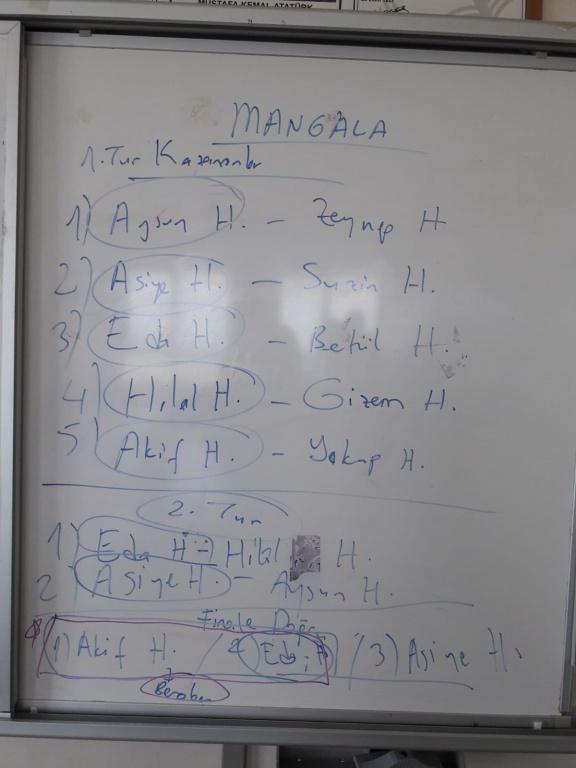 MUSTAFA KEMAL ATATÜRK
MANGALA
1. Tur Kazananlar
1) Aysun H. – Zeynep H
2) Asiye H. – Suzin H.
3) Eda H. – Betül H.
4) Hilal H. – Gizem H.
5) Akif H. – Yakup H.
2. Tur
1) Eda H – Hilal H.
2 Asiye H. – Aysun H.
Finale Doğru
1) Akif H. / 2 Eda H / 3) Asiye H.
Beraber